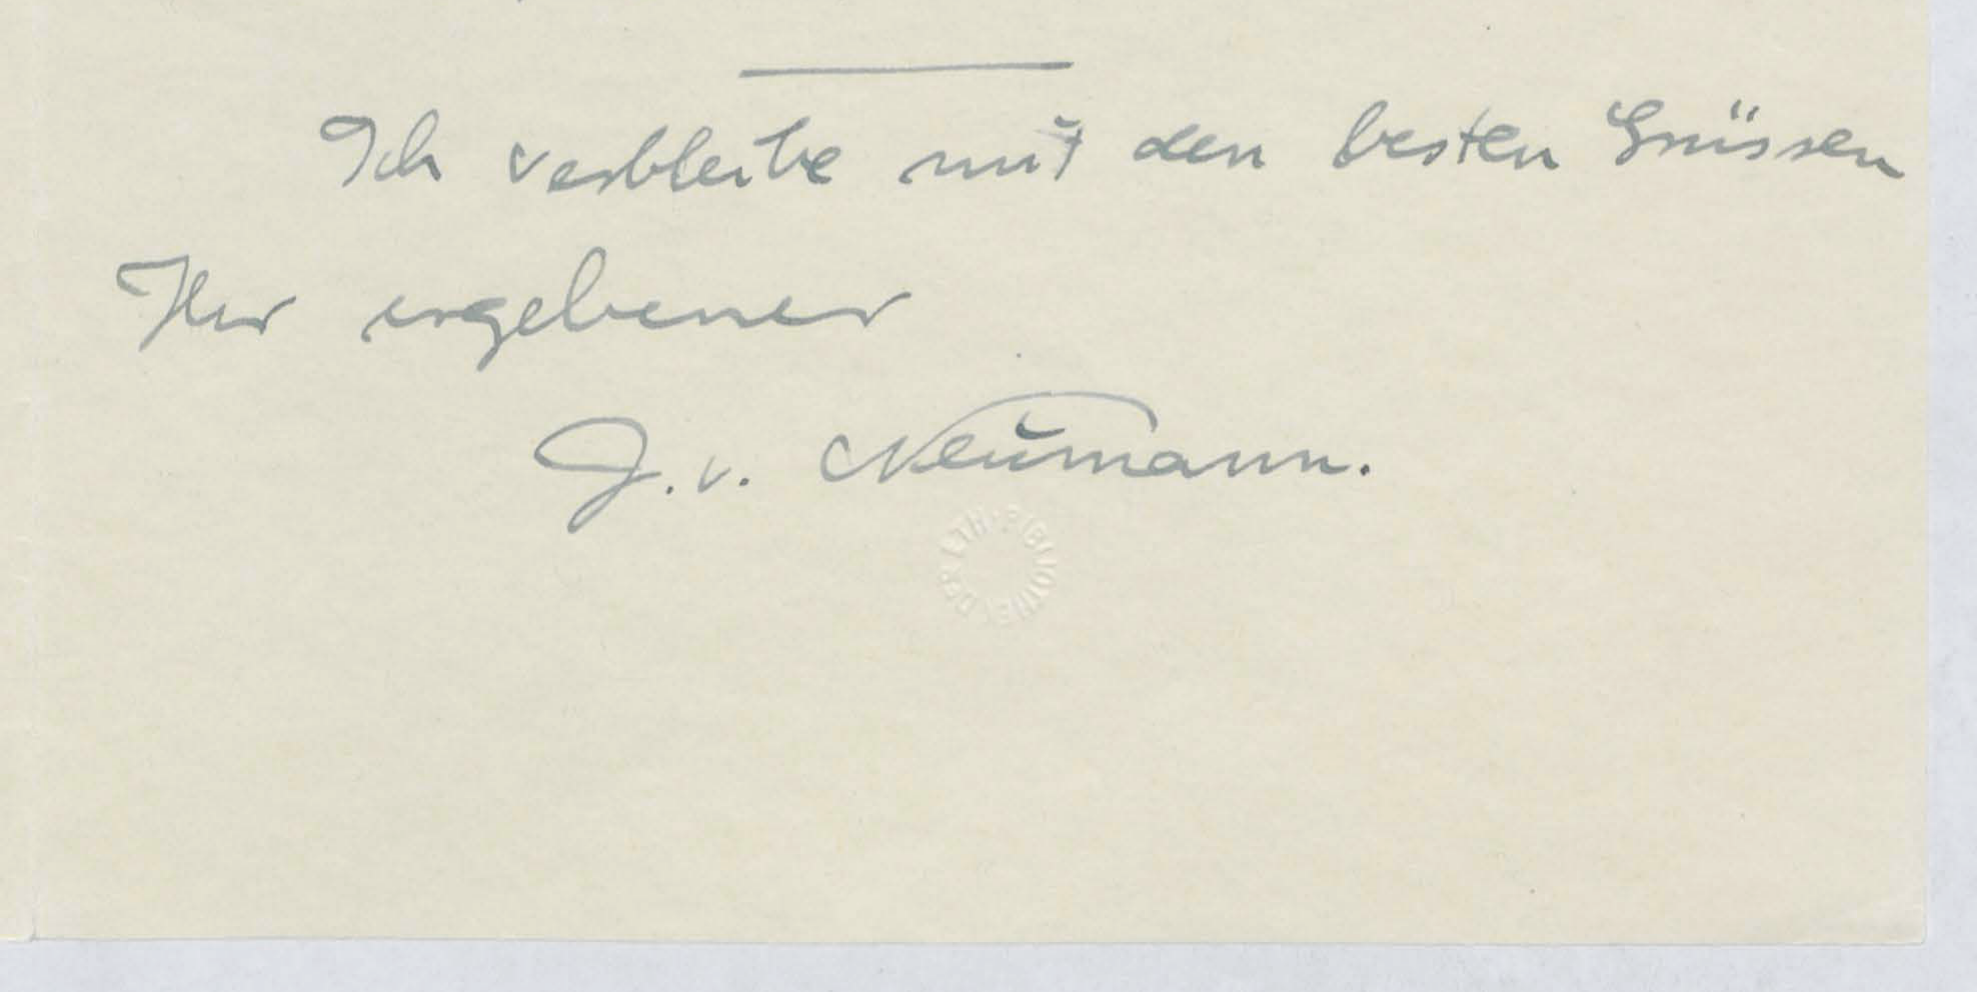 Ich verbleibe mit den besten Grüssen
Ihr ergebener
J. v. Neumann.
DER ETH · BIBLIOTHEK